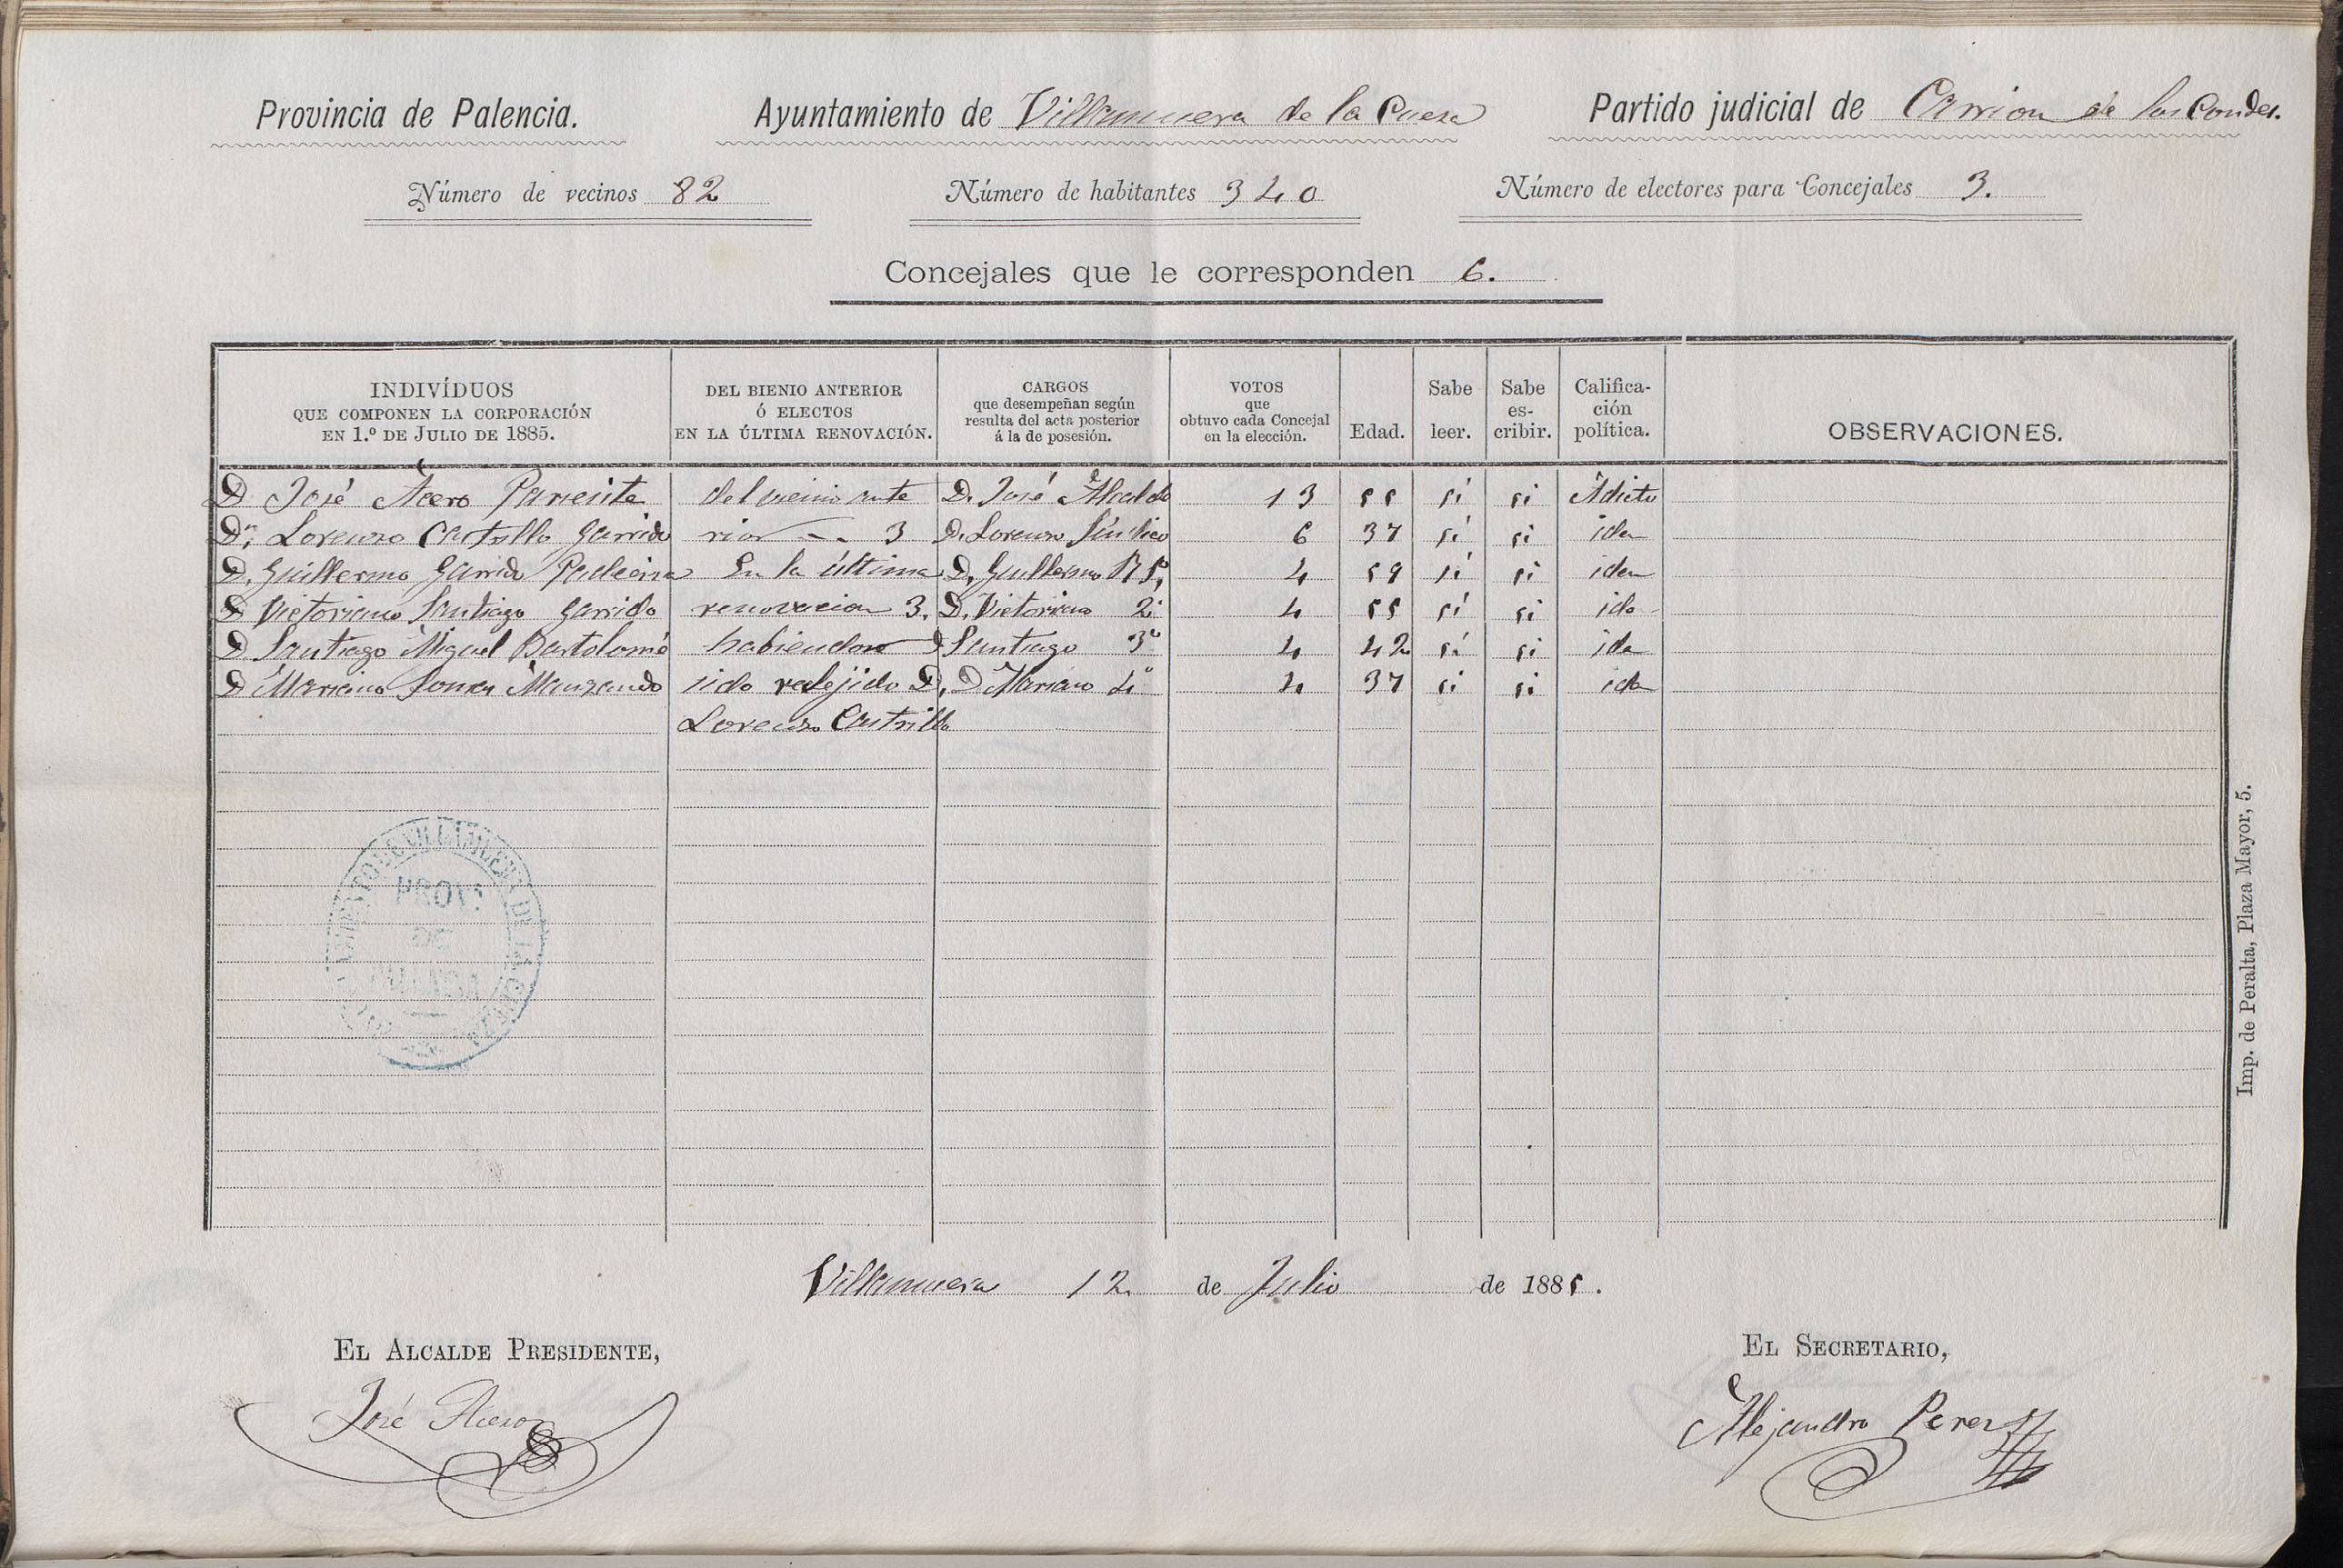 Provincia de Palencia. Ayuntamiento de Villanueva de la Cueza Partido judicial de Carrion de los Condes.
Número de vecinos 82 Número de habitantes 340 Número de electores para Concejales 3.
Concejales que le corresponden 6.
INDIVÍDUOS
QUE COMPONEN LA CORPORACIÓN
EN 1.º DE JULIO DE 1885.
DEL BIENIO ANTERIOR
Ó ELECTOS
EN LA ÚLTIMA RENOVACIÓN.
CARGOS
que desempeñan según
resulta del acta posterior
á la de posesión.
VOTOS
que
obtuvo cada Concejal
en la elección.
Edad.
Sabe
leer.
Sabe
es-
cribir.
Califica-
ción
política.
OBSERVACIONES.
D José Acero Pariente del vienio ante D. José Alcalde 13 55 sí si Adicto
Dn. Lorenzo Castrillo Garrido rior 3 D. Lorenzo Síndico 6 37 sí si iden
D. Guillermo Garrido En la última D. Guillermo 4 59 sí si iden
D Victoriano Santiago Garrido renovacion 3. D. Victoriano 2º 4 55 sí si ide
D. Santiago Miguel Bartolomé habiendo D Santiago 3º 4 42 sí si ide
D Mariano Manzanedo sido reelejido D. D Mariano 4º 4 37 si si ide
Lorenzo Castrillo
PROVª
DE
Imp. de Peralta, Plaza Mayor, 5.
Villanueva 12 de Julio de 1885.
EL ALCALDE PRESIDENTE, EL SECRETARIO,
José Acero Alejandro Perez